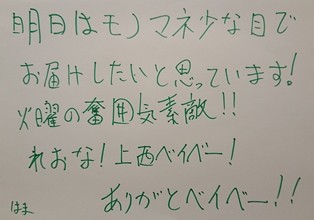 明日はモノマネ少な目で
お届けしたいと思っています!
火曜の奮囲気素敵!!
れおな!上西ベイベー!
はま ありがとベイベー!!